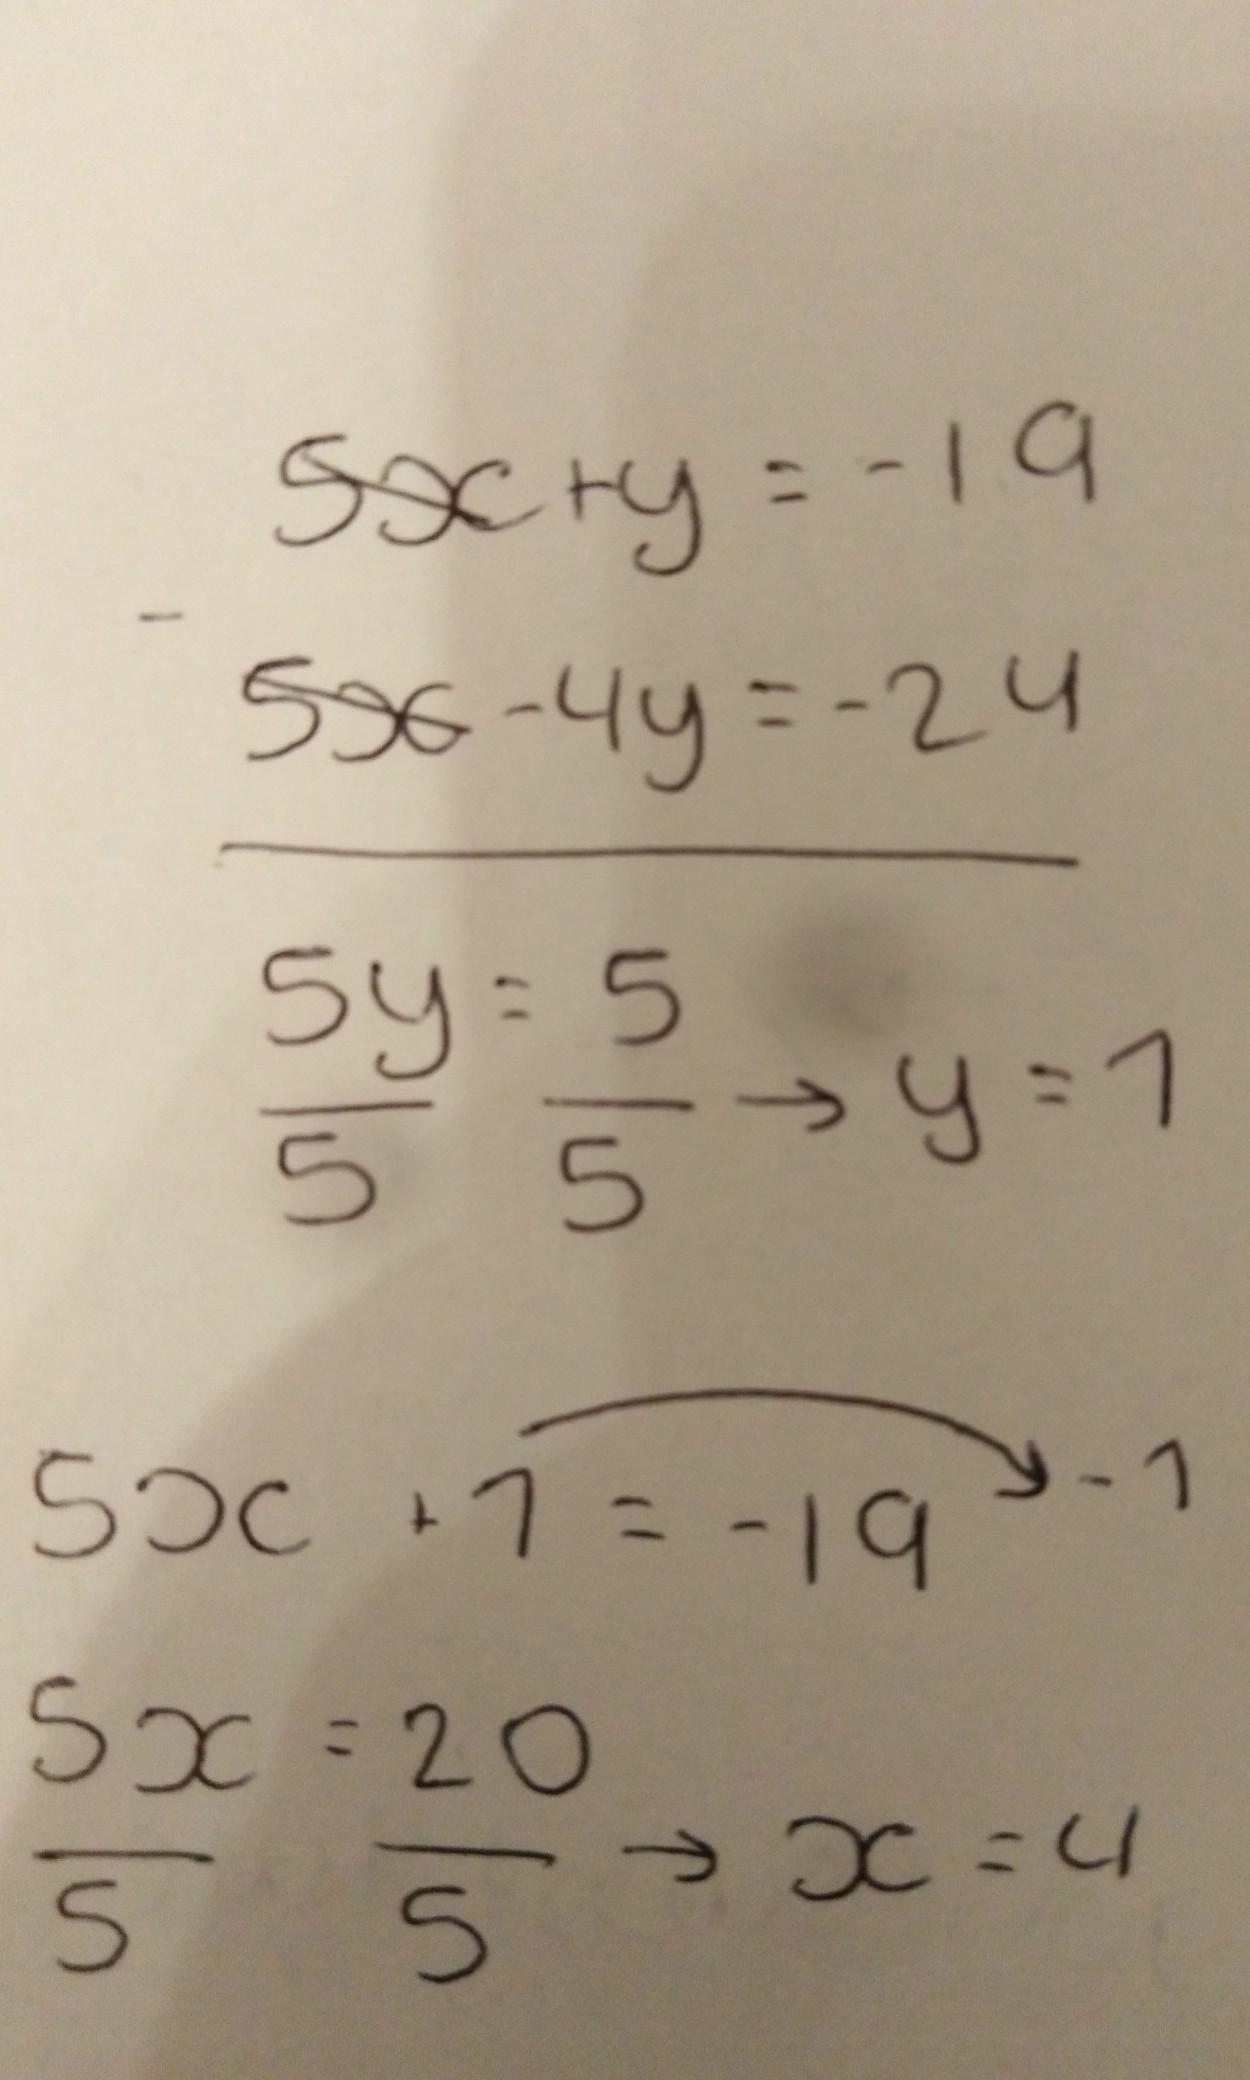 5x+y = -19
-
5x -4y = -24
5y = 5
5 5 → y = 1
5x + 1 = -19 → -1
5x = 20
5 5 → x = 4